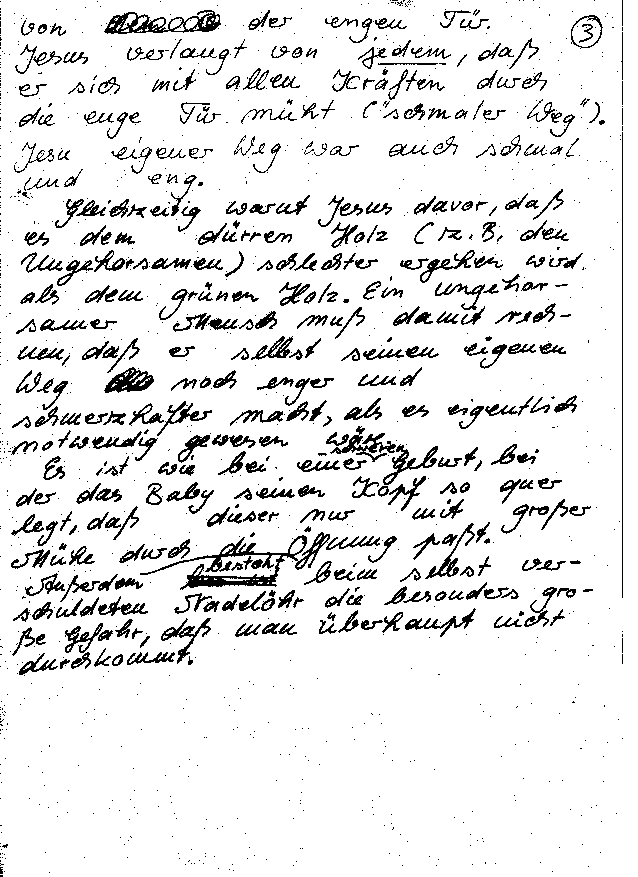 von der engen Tür. ③
Jesus verlangt von jedem, daß
er sich mit allen Kräften durch
die enge Tür müht ("schmaler Weg").
Jesu eigener Weg war auch schmal
und eng.
Gleichzeitig warnt Jesus davor, daß
es dem dürren Holz (z.B. den
Ungehorsamen) schlechter ergehen wird
als dem grünen Holz. Ein ungehor-
samer Mensch muß damit rech-
nen, daß er selbst seinen eigenen
Weg noch enger und
schmerzhafter macht, als es eigentlich
notwendig gewesen wäre.
Es ist wie bei einer schweren Geburt, bei
der das Baby seinen Kopf so quer
legt, daß dieser nur mit großer
Mühe durch die Öffnung paßt.
Außerdem besteht beim selbst ver-
schuldeten Nadelöhr die besonders gro-
ße Gefahr, daß man überhaupt nicht
durchkommt.